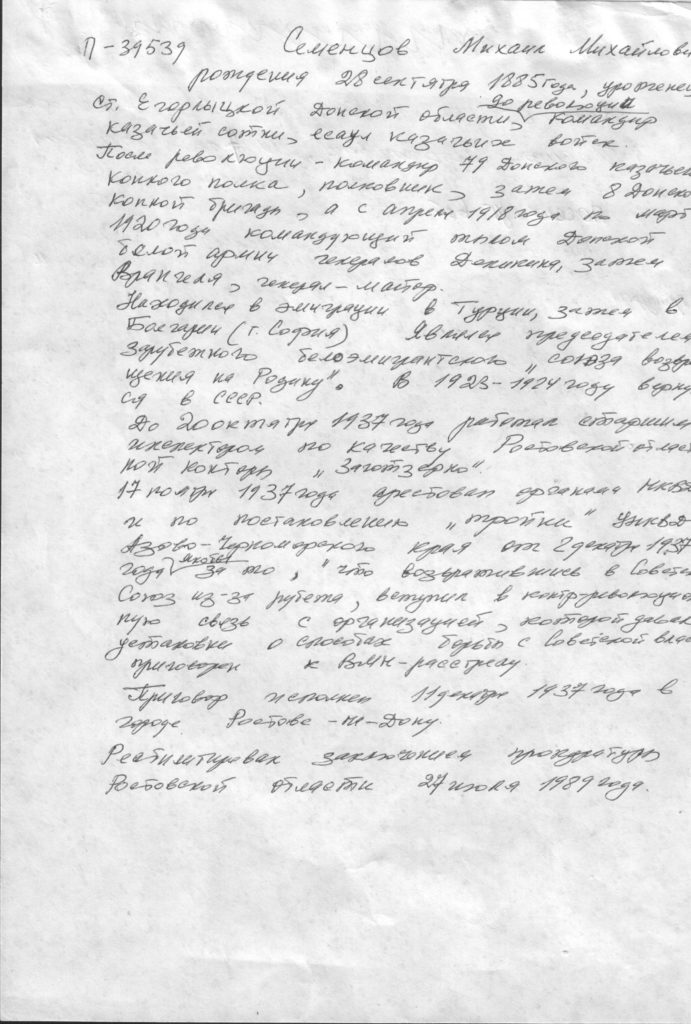 П-39539 Семенцов Михаил Михайлови
рождения 28 сентября 1885 года, уроженец
до революции
ст. Егорлыцкой Донской области, командир
казачьей сотни, есаул казачьих войск.
После революции - командир 79 Донского казачьего
конного полка, полковник, затем 8 Донско
конной бригады, а с апреля 1918 года по март
1920 года командующий тылом Донской
белой армии генералов Деникина, затем
Врангеля, генерал-майор.
Находился в эмиграции в Турции, затем в
Болгарии (г. София) Являлся председателем
Зарубежного белоэмигрантского „союза возвра
щения на Родину". В 1923-1924 году верну
ся в СССР.
До 20 октября 1937 года работал старшим
инспектором по качеству Ростовской област
ной конторы „Заготзерно".
17 ноября 1937 года арестован органами НКВД
и по постановлению „тройки" УНКВД
Азово-Черноморского края от 2 декабря 1937
якобы
года за то, "что возвратившись в Советс
Союз из-за рубежа, вступил в контрреволюцион
ную связь с организацией, которой давал
установки о способах борьбы с Советской влас
приговорен к ВМН-расстрелу.
Приговор исполнен 11 декабря 1937 года в
городе Ростове-на-Дону.
Реабилитирован заключением прокуратуры
Ростовской области 27 июля 1989 года.